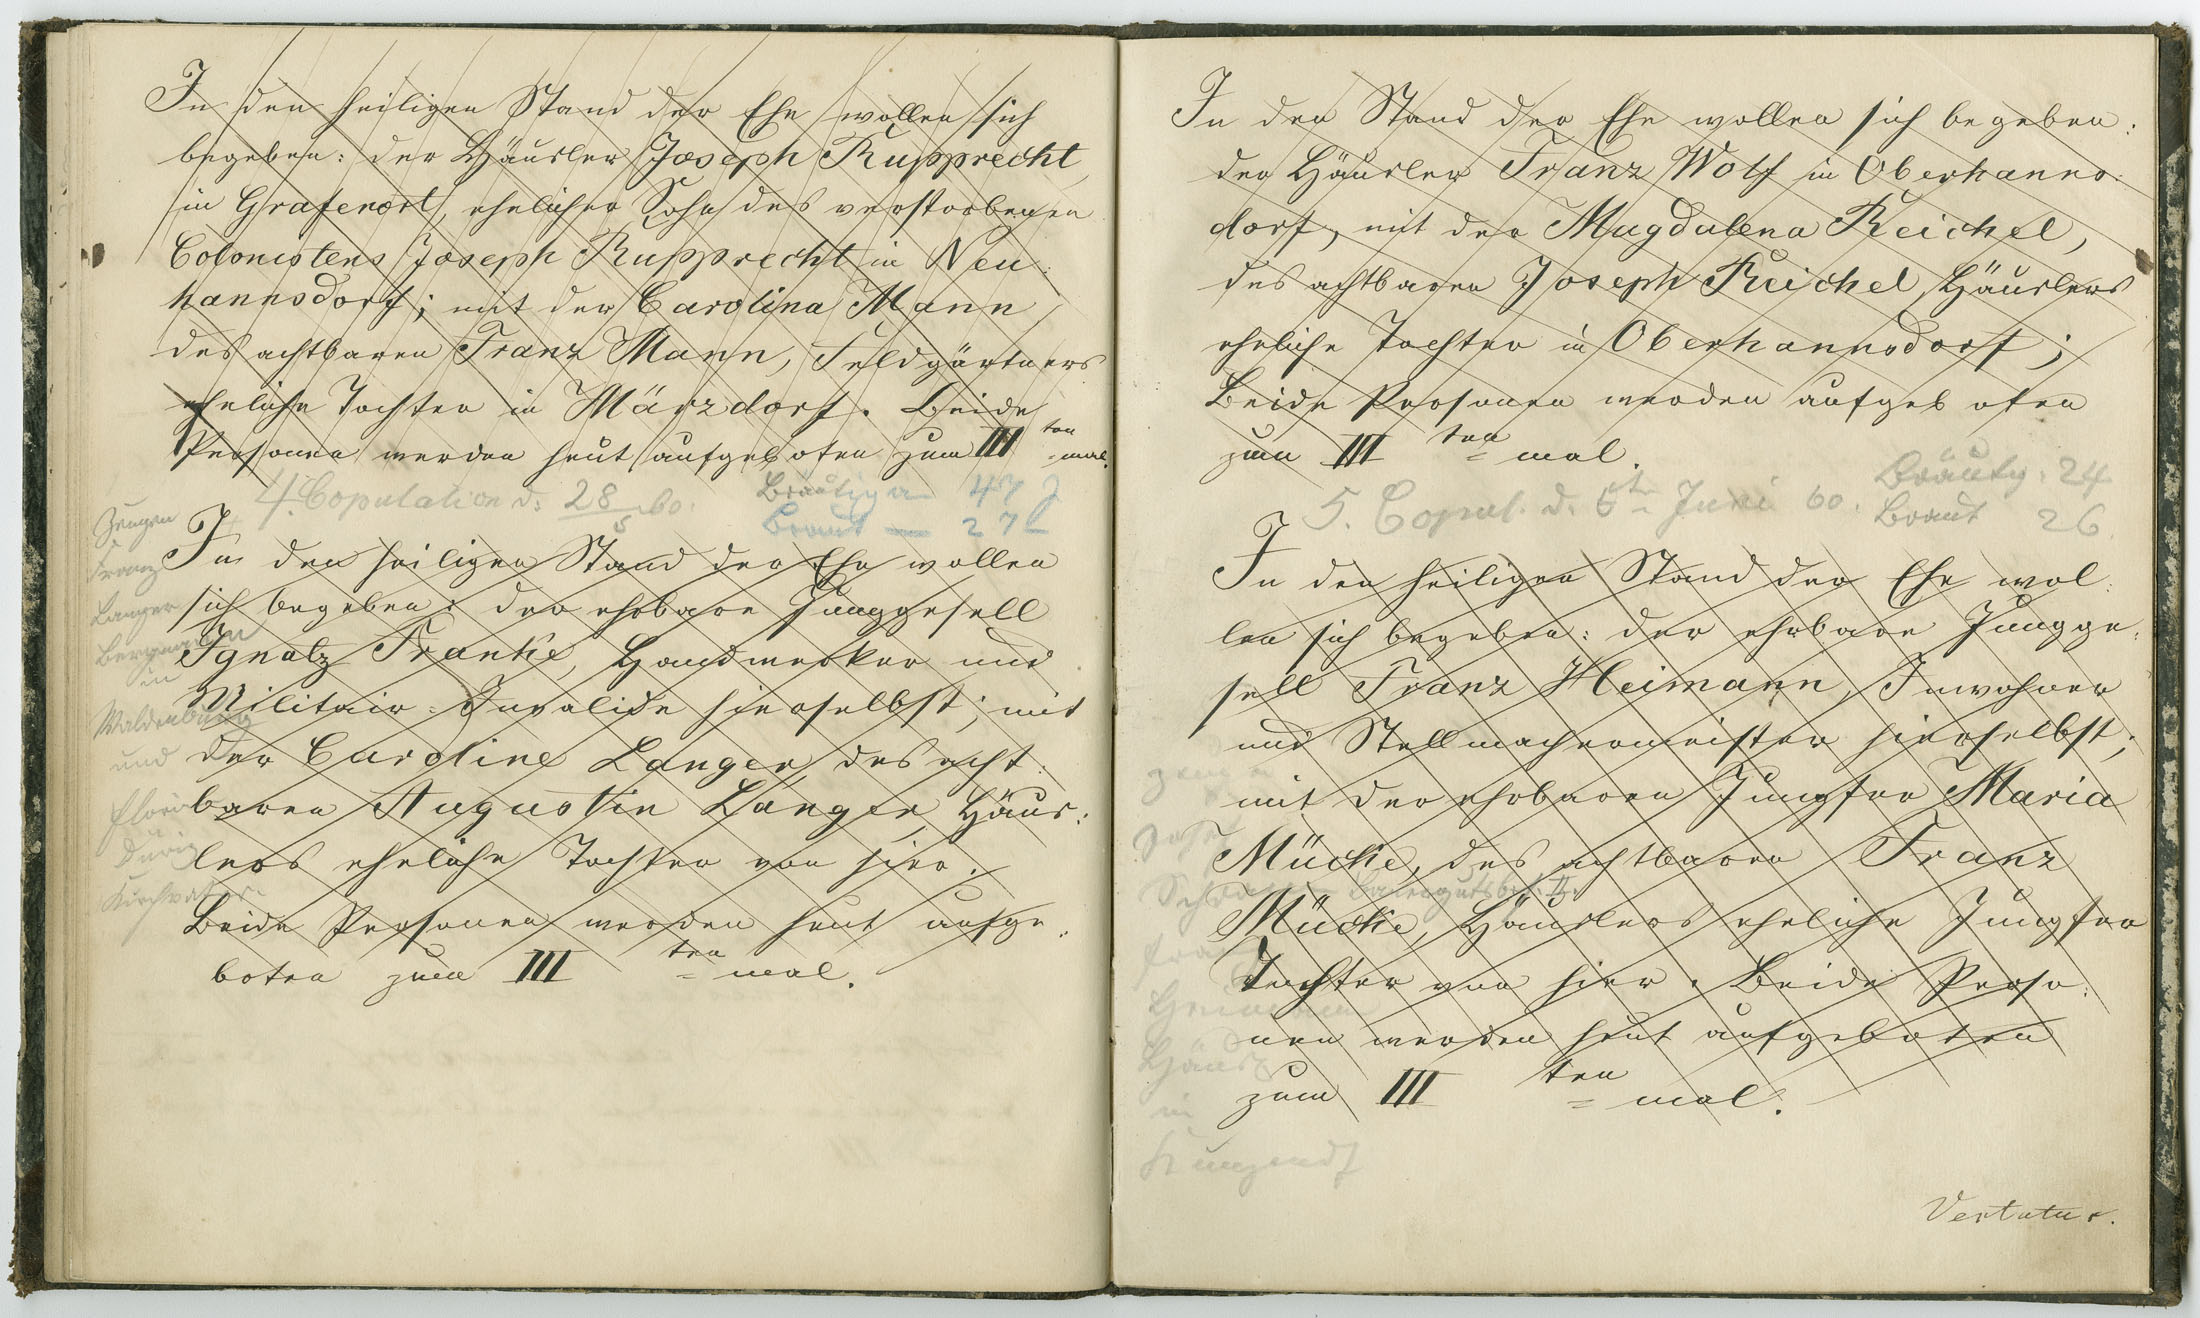 In den heiligen Stand der Ehe wollen sich
begeben: der Häusler Joseph Rupprecht
in Grafenort, ehelicher Sohn des verstorbenen
Colonistens Joseph Rupprecht in Neu:
hannsdorf; mit der Carolina Mann
des achtbaren Franz Mann, Feldgärtners
eheliche Tochter in Märzdorf. Beide
Personen werden heut aufgeboten zum III ten = mal.
4. Copulation d. 28/5 60. Bräutigam 47 J
Braut — 27
Zeugen
Franz
Langer
Bergmann
in
Waldenburg
und
Kirchvater
In den heiligen Stand der Ehe wollen
sich begeben: der ehrbare Junggesell
Ignatz Franke, Handwerker und
Militair-Invalide hierselbst; mit
der Caroline Langer, des acht:
baren Augustin Langer, Häus:
lers eheliche Tochter von hier.
Beide Personen werden heut aufge:
boten zum III ten = mal.
In den Stand der Ehe wollen sich begeben:
der Häusler Franz Wolf in Oberhanns:
dorf, mit der Magdalena Reichel,
des achtbaren Joseph Reichel, Häuslers
eheliche Tochter in Oberhannsdorf;
Beide Personen werden aufgeboten
zum III ten = mal.
5. Copul. d. 5t Juni 60. Bräutg: 24
Braut 26
In den heiligen Stand der Ehe wol:
len sich begeben: der ehrbare Jungge:
sell Franz Heimann, Inwohner
und Stellmachermeister hierselbst;
mit der ehrbaren Jungfer Maria
Mücke, des achtbaren Franz
Bauergutsbes.
Mücke, Häuslers eheliche Jungfer
Tochter von hier. Beide Perso:
nen werden heut aufgeboten
zum III ten = mal.
Heimann
Häusl
in
Kunzendf
Vertatur.